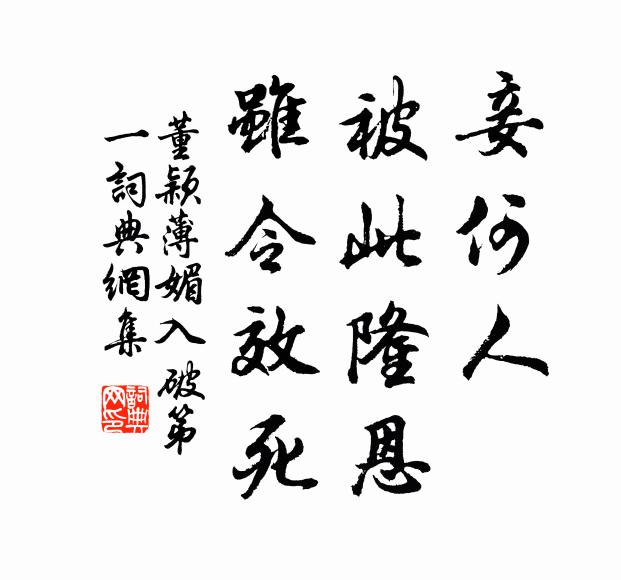 妾何人
被此隆恩
雖令效死
董颖薄媚入破第
一詞典網集
詞典網印